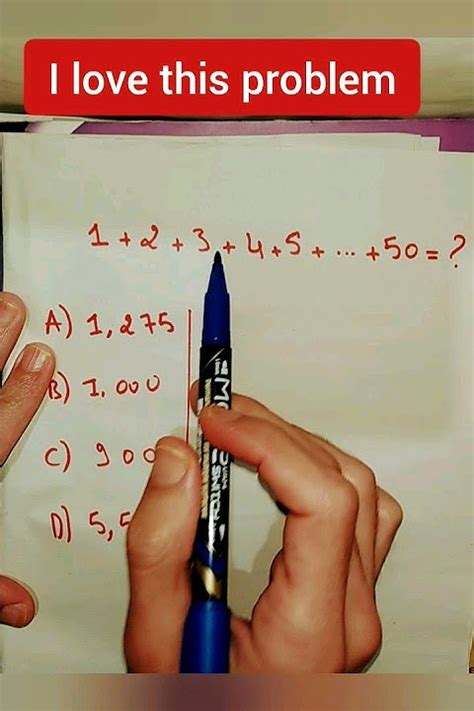 I love this problem
1 + 2 + 3 + 4 + 5 + ... + 50 = ?
A) 1,275
B) 1.000
C) 900
D) 5,5